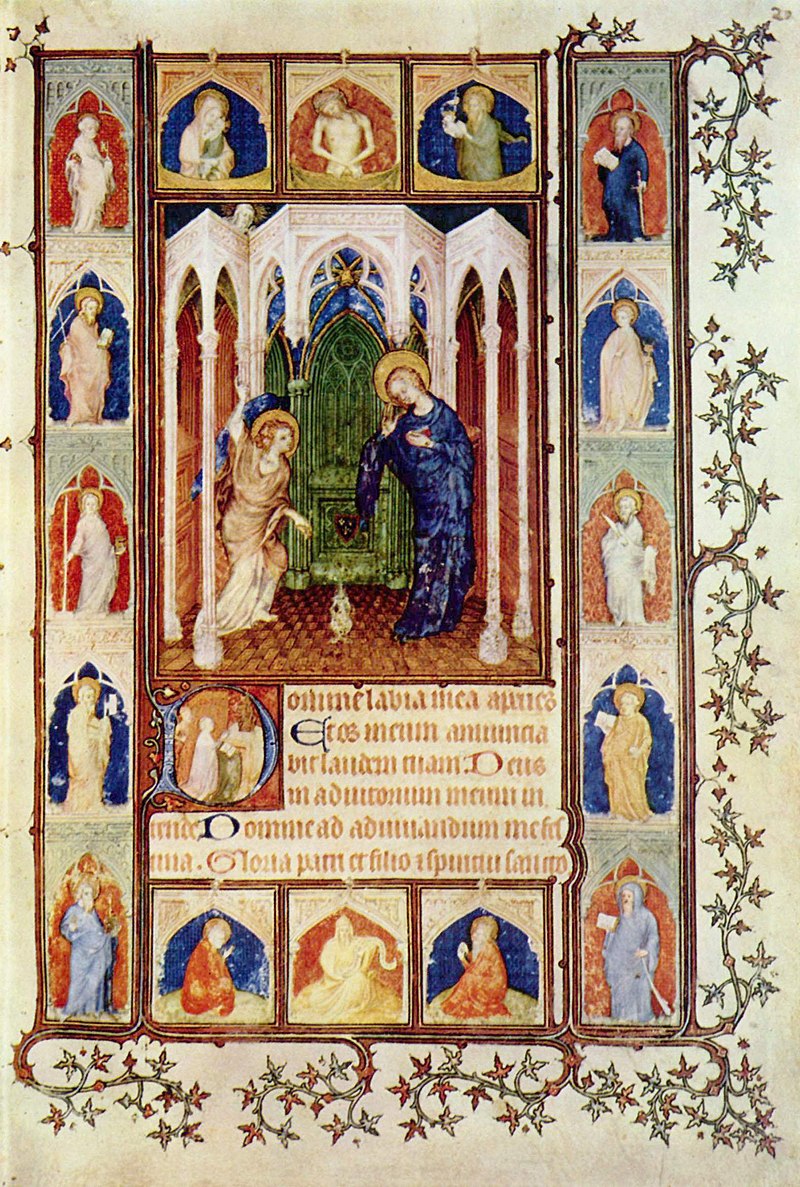 Domine labia mea aperies
Et os meum annuncia
bit laudem tuam Deus
in adiutorium meum in
tende Domine ad adiuuandum me fes
tina. Gloria patri et filio ⁊ spiritui sancto